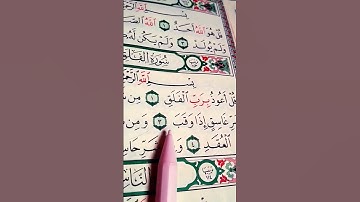 قُلْ هُوَ اللَّهُ أَحَدٌ ١ اللَّهُ
وَلَمْ يُولَدْ ٣ وَلَمْ يَكُن لَّهُ
سُورَةُ الفَلَقِ
بِسْمِ اللَّهِ
قُلْ أَعُوذُ بِرَبِّ الْفَلَقِ ١ مِن
غَاسِقٍ إِذَا وَقَبَ ٣ وَمِن
الْعُقَدِ ٤
النَّاسِ